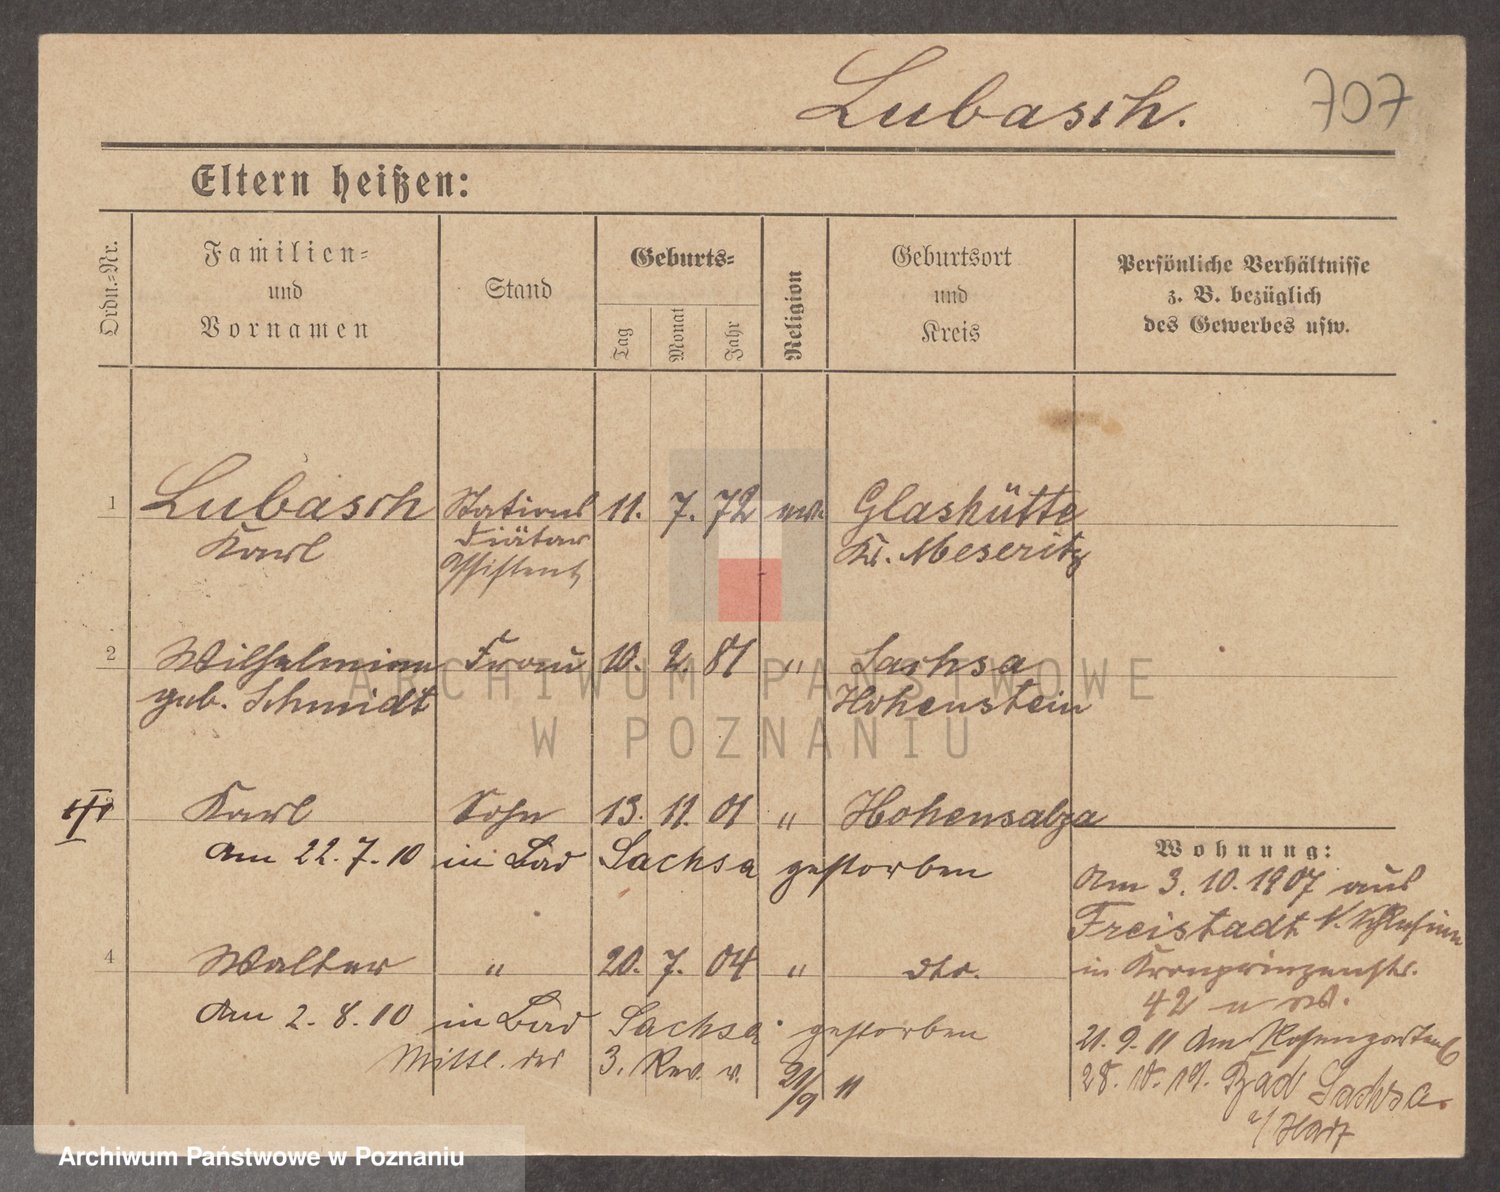 Lubasch. 707
Eltern heißen:
Ordn.-Nr.
Familien-
und
Vornamen
Stand
Geburts-
Tag
Monat
Jahr
Religion
Geburtsort
und
Kreis
Persönliche Verhältnisse
z. B. bezüglich
des Gewerbes usw.
1 Lubasch Stations 11. 7. 72 ev. Glashütte
Karl Diätar Kr. Meseritz
Assistent
2 Wilhelmine Frau 10. 2. 81 " Sachsa
geb. Schmidt Hohenstein
Karl Sohn 13. 11. 01 " Hohensalza
am 22. 7. 10 in Bad Sachsa gestorben
4 Walter " 20. 7. 04 " dto.
am 2. 8. 10 in Bad Sachsa gestorben
Mittl. des 3. Rev. v. 21/9 11
Wohnung:
Am 3. 10. 1907 aus
Freistadt N. Schlesien
in Kronprinzenstr.
42
21. 9. 11 Am Rosengarten 6
28. 10. 19. Bad Sachsa.
a/Harz
ARCHIWUM PAŃSTWOWE
W POZNANIU
Archiwum Państwowe w Poznaniu